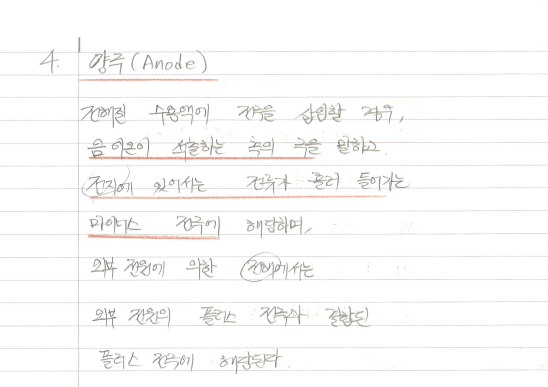 4. 양극 (Anode)
전해질 수용액에 전극을 삽입할 경우,
음이온이 석출하는 측의 극을 말하고.
전지에 있어서는 전류가 흘러 들어가는
마이너스 전극에 해당하며,
외부 전원에 의한 전해에서는
외부 전원의 플러스 전극과 결합된
플러스 전극에 해당된다.